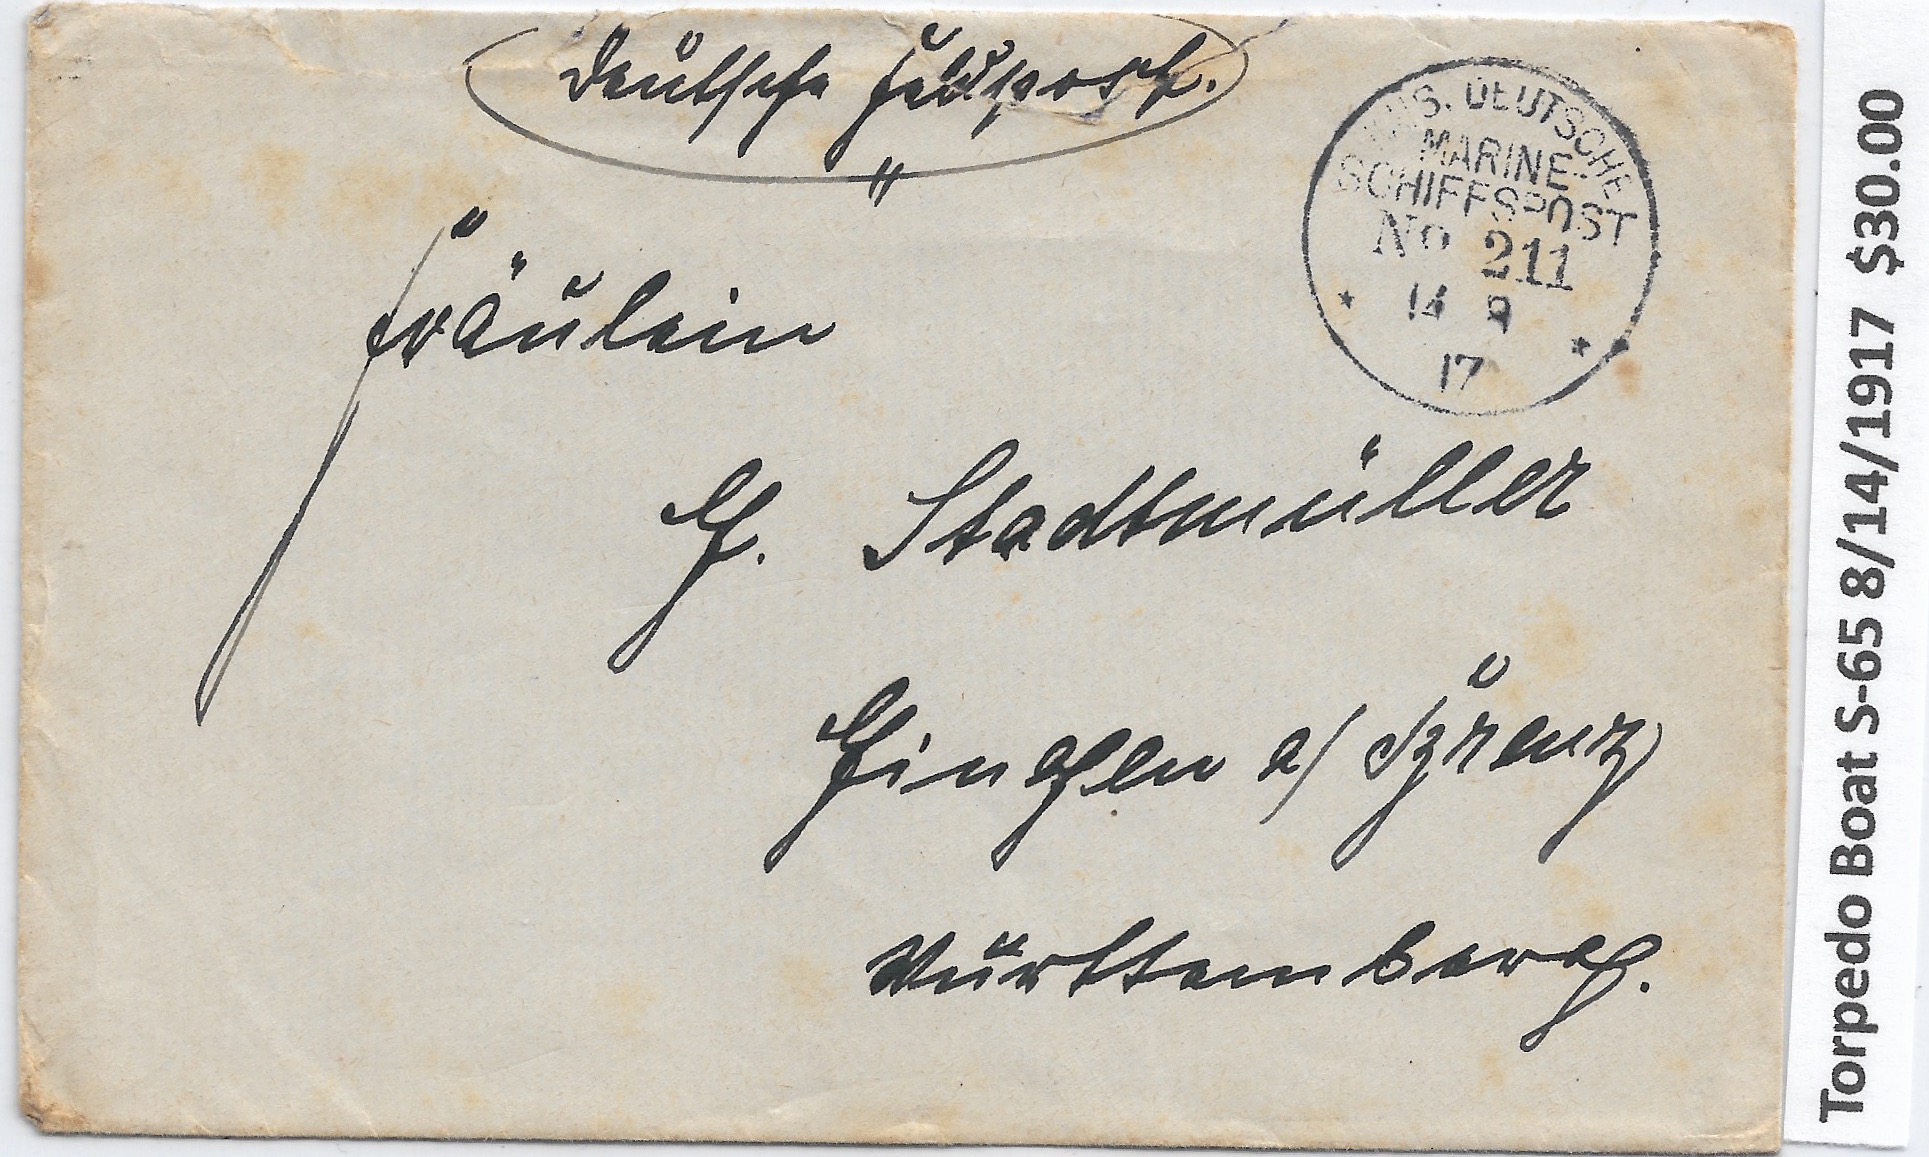 Deutsche Feldpost.
KAIS. DEUTSCHE
MARINE-
SCHIFFSPOST
No 211
14 8
17
Fräulein
G. Stadtmüller
Giengen a/ Brenz
Württemberg.
Torpedo Boat S-65 8/14/1917 $30.00